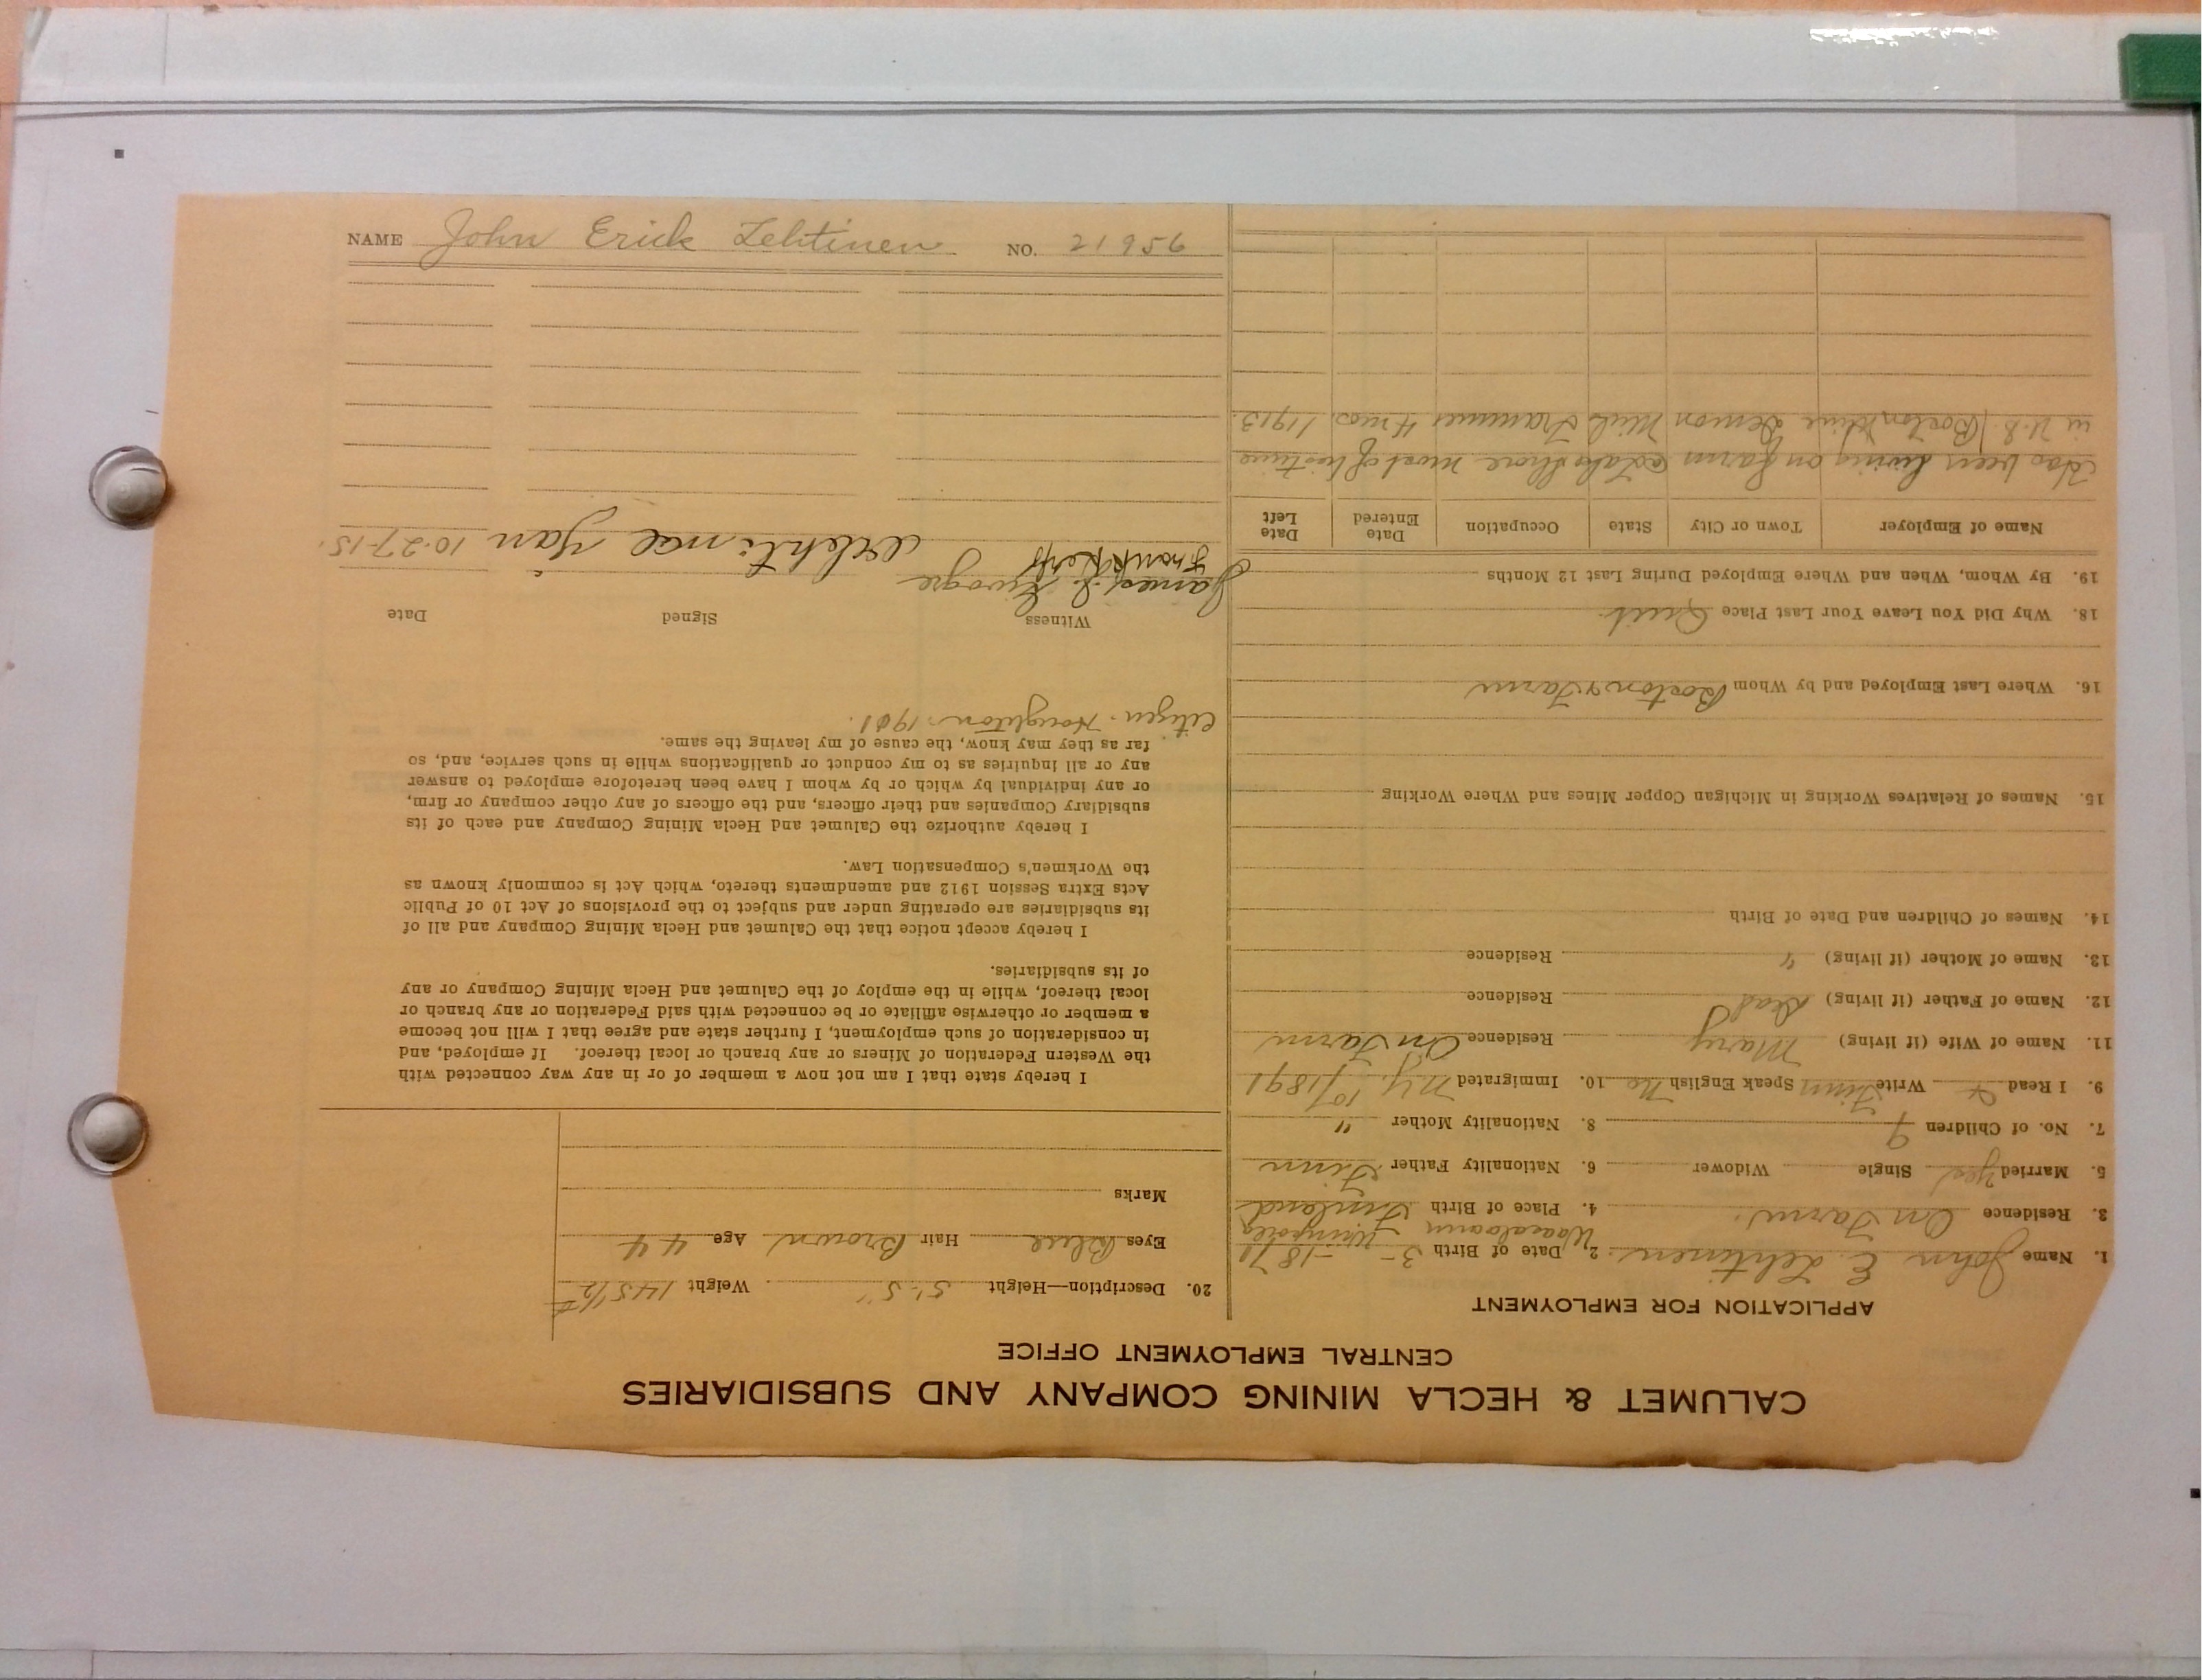 CALUMET & HECLA MINING COMPANY AND SUBSIDIARIES
CENTRAL EMPLOYMENT OFFICE
APPLICATION FOR EMPLOYMENT
1. Name John E. Lehtinen 2. Date of Birth 3 - - 1871
3. Residence On Farm. 4. Place of Birth Finland
5. Married Yes Single Widower 6. Nationality Father Finn
7. No. of Children 9 8. Nationality Mother "
9. I Read & Write Finn Speak English No 10. Immigrated N.Y. 10/1891
11. Name of Wife (if living) Mary Residence On Farm
12. Name of Father (if living) Dead Residence
13. Name of Mother (if living) " Residence
14. Names of Children and Date of Birth
15. Names of Relatives Working in Michigan Copper Mines and Where Working
16. Where Last Employed and by Whom Boston & Farm
18. Why Did You Leave Your Last Place Quit.
19. By Whom, When and Where Employed During Last 12 Months
Name of Employer Town or City State Occupation Date Entered Date Left
Has been living on farm @ Lake Shore most of his time
in U.S. (Boston Mine Demon Mich Trammer 4 mos. 1913.
20. Description—Height 5'-5" Weight 145 1/2 #
Eyes Blue Hair Brown Age 44
Marks
I hereby state that I am not now a member of or in any way connected with
the Western Federation of Miners or any branch or local thereof. If employed, and
in consideration of such employment, I further state and agree that I will not become
a member or otherwise affiliate or be connected with said Federation or any branch or
local thereof, while in the employ of the Calumet and Hecla Mining Company or any
of its subsidiaries.
I hereby accept notice that the Calumet and Hecla Mining Company and all of
its subsidiaries are operating under and subject to the provisions of Act 10 of Public
Acts Extra Session 1912 and amendments thereto, which Act is commonly known as
the Workmen's Compensation Law.
I hereby authorize the Calumet and Hecla Mining Company and each of its
subsidiary Companies and their officers, and the officers of any other company or firm,
or any individual by which or by whom I have been heretofore employed to answer
any or all inquiries as to my conduct or qualifications while in such service, and, so
far as they may know, the cause of my leaving the same.
Citizen - Houghton 1901.
Witness Signed Date
James
Frank 10-27-15.
NAME John Erick Lehtinen NO. 21956